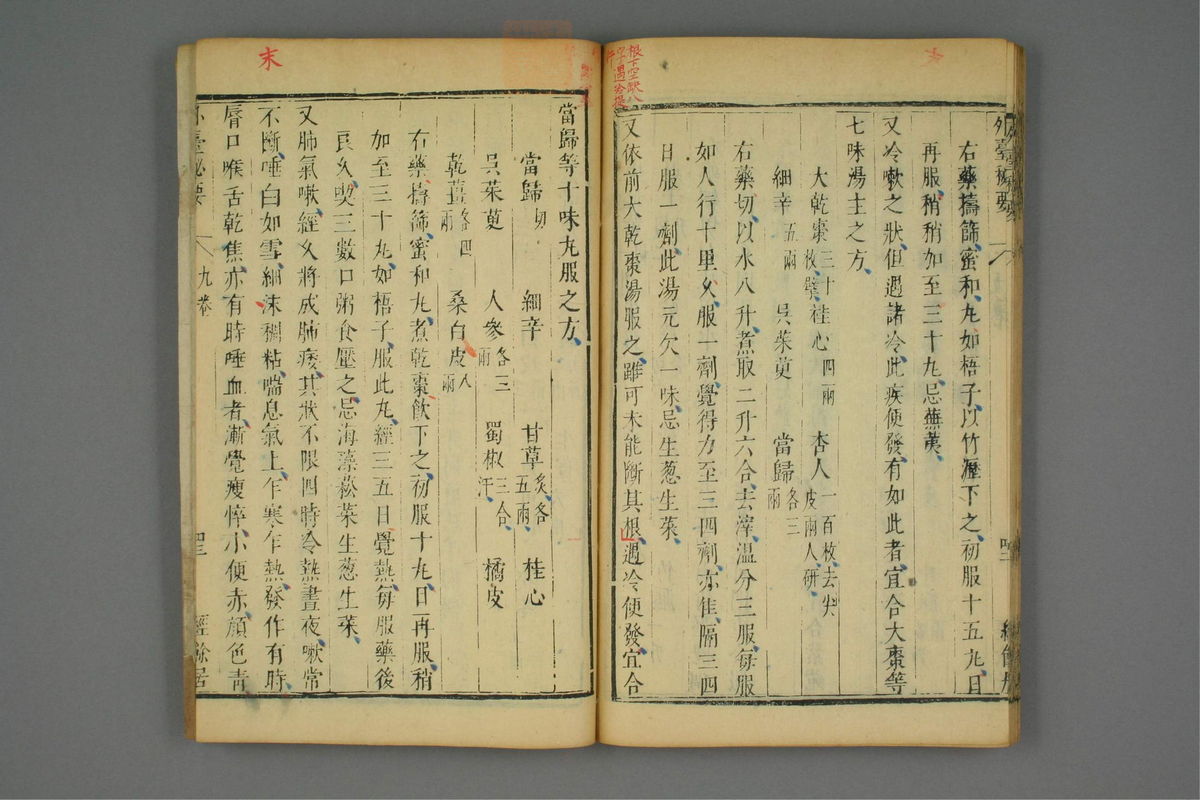 外臺秘要
右藥擣篩蜜和丸如梧子以竹瀝下之初服十五丸日
再服稍稍加至三十丸忌蕪荑
又冷嗽之狀但遇諸冷此疾便發有如此者宜合大棗等
七味湯主之方
大乾棗三十枚擘 桂心四兩 杏人一百枚去尖皮兩人研
細辛五兩 吳茱萸 當歸各三兩
右藥切以水八升煮取二升六合去滓溫分三服每服
如人行十里久服一劑覺得力至三四劑亦佳隔三四
日服一劑此湯元欠一味忌生葱生菜
又依前大乾棗湯服之雖可未能斷其根遇冷便發宜合
根下空缺八
當歸等十味丸服之方
當歸切 細辛 甘草炙各五兩 桂心
吳茱萸 人參各三兩 蜀椒三合汗 橘皮
乾薑各四兩 桑白皮八兩
右藥擣篩蜜和丸煮乾棗飲下之初服十丸日再服稍
加至三十丸如梧子服此丸經三五日覺熱每服藥後
良久喫三數口粥食壓之忌海藻菘菜生葱生菜
又肺氣嗽經久將成肺痿其狀不限四時冷熱晝夜嗽常
不斷唾白如雪細沫稠粘喘息氣上乍寒乍熱發作有時
脣口喉舌乾焦亦有時唾血者漸覺瘦悴小便赤顔色青
外臺秘要 九卷 經餘居
末